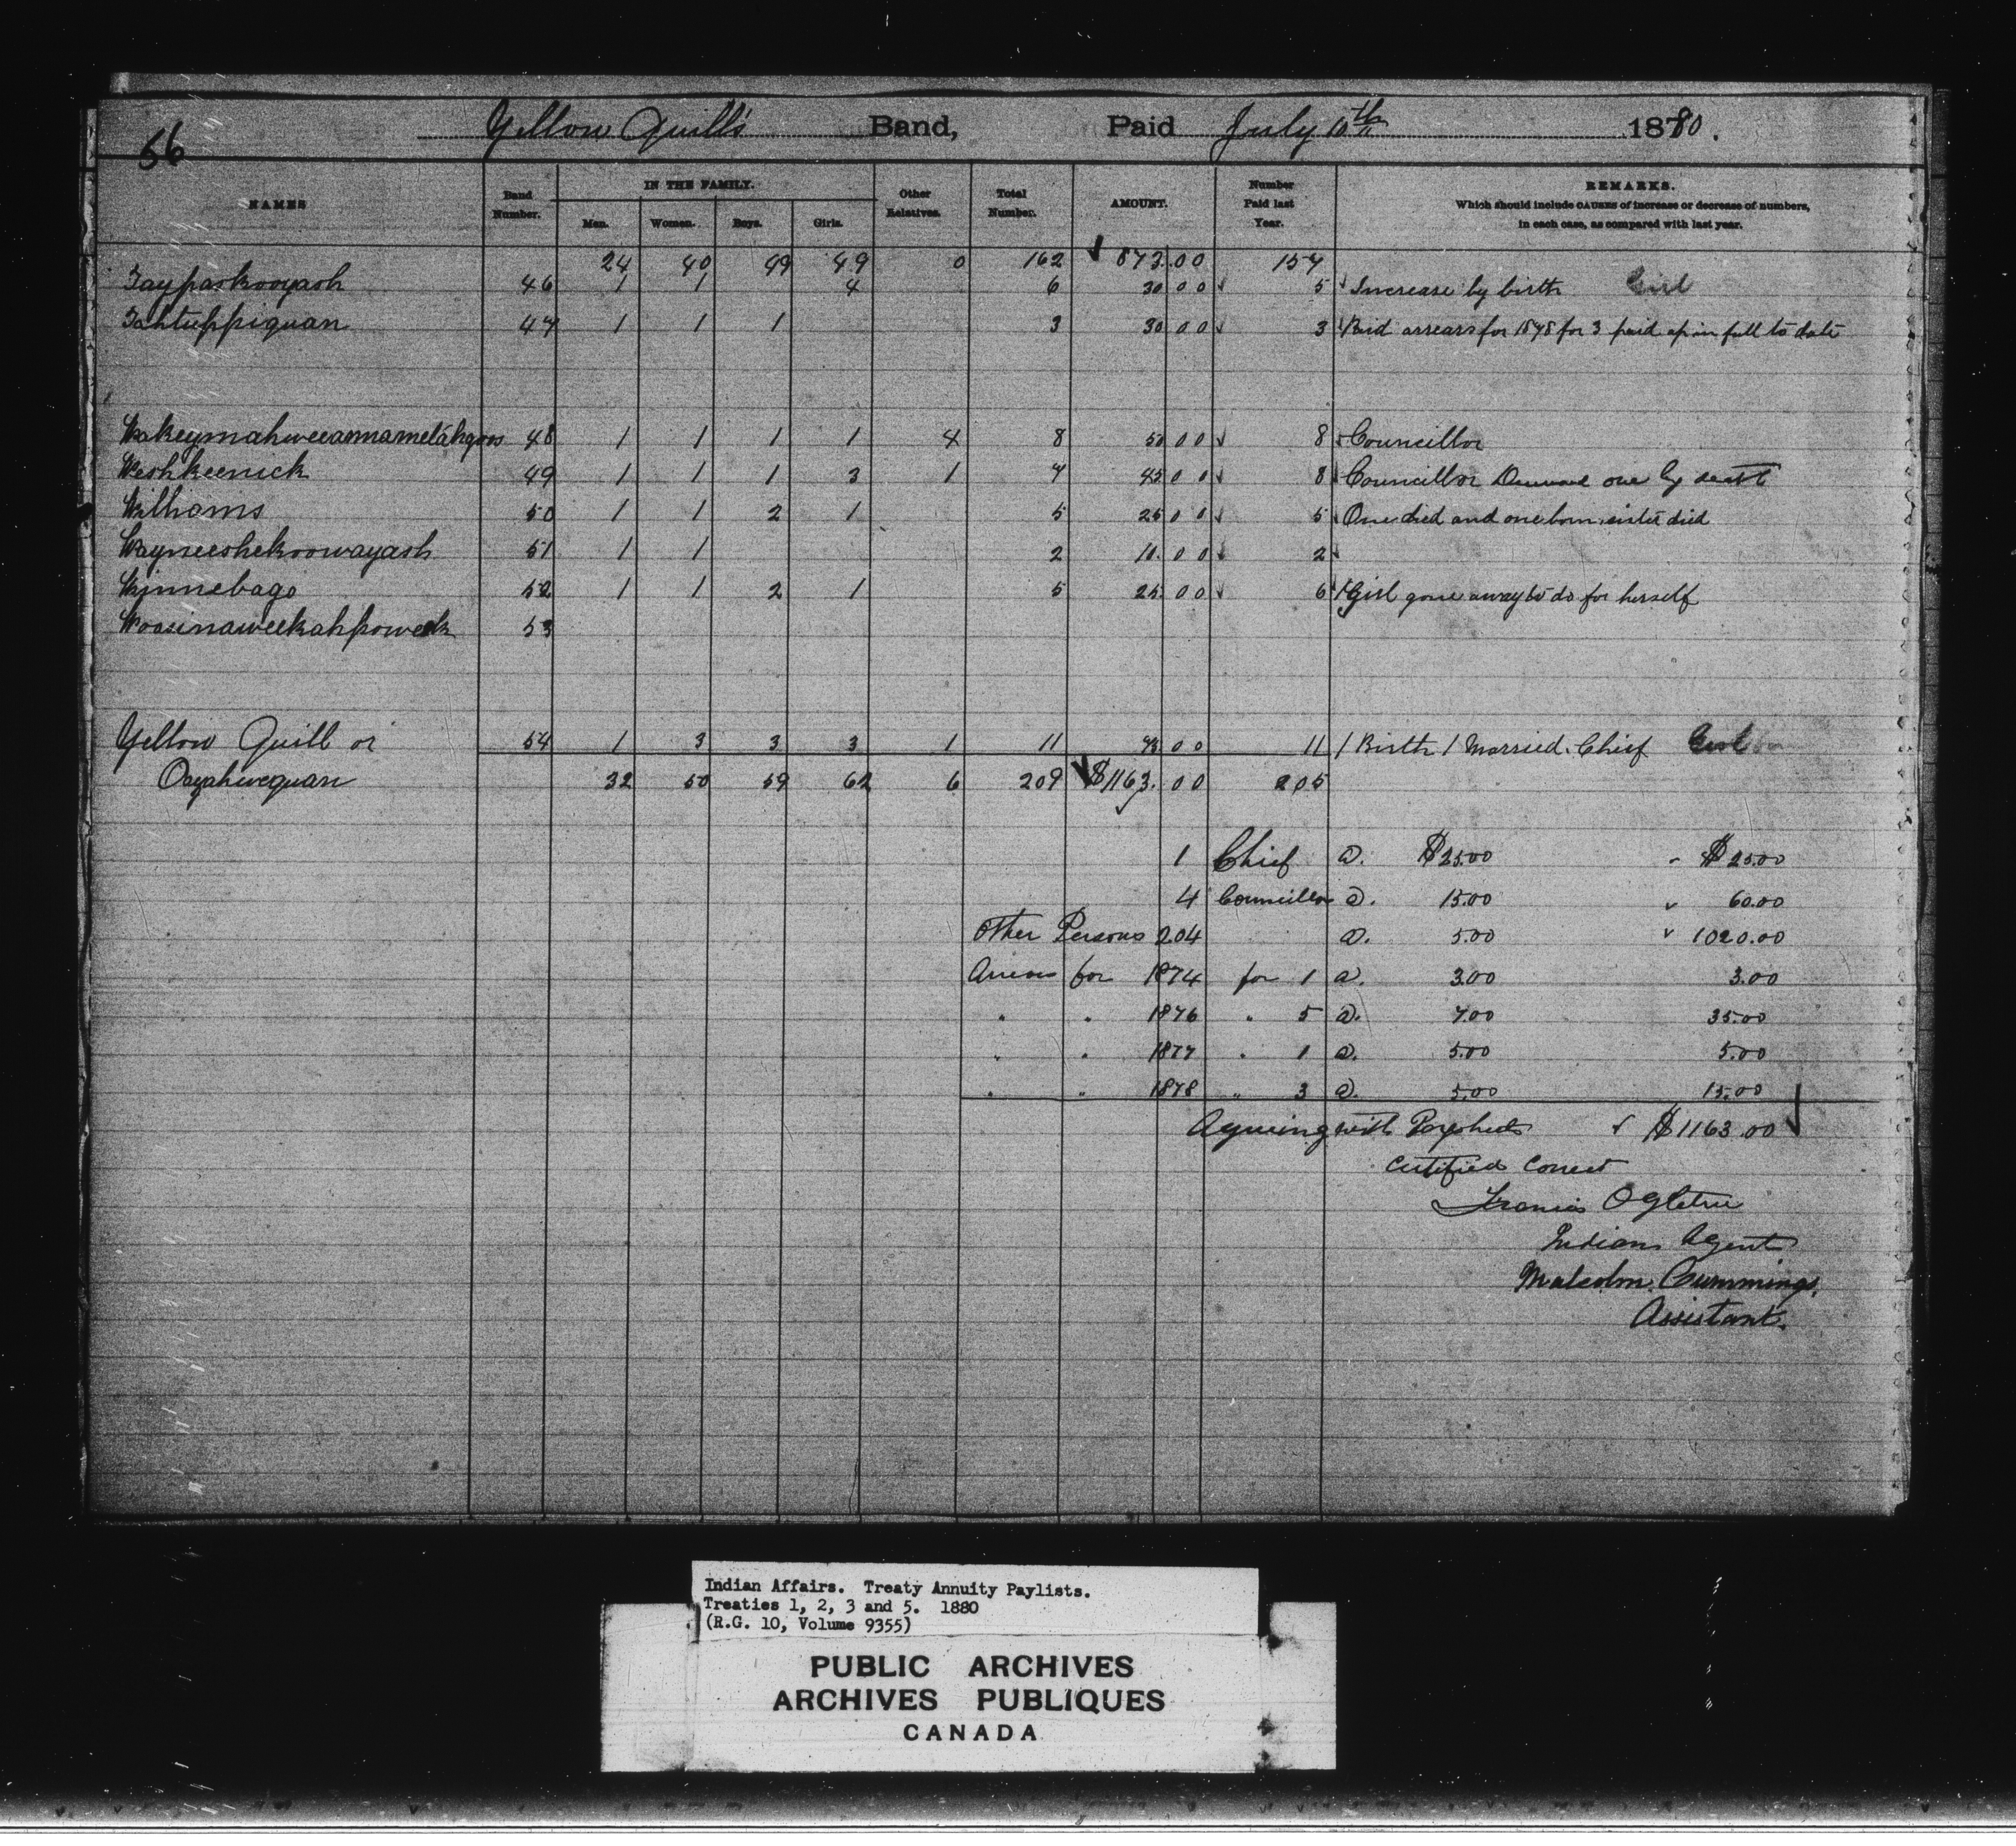 56
Yellow Quill's Band, Paid July 10th 1880.
NAMES Band Number. IN THE FAMILY. Men. Women. Boys. Girls. Other Relatives. Total Number. AMOUNT. Number Paid last Year. REMARKS. Which should include CAUSES of increase or decrease of numbers, in each case, as compared with last year.
24 40 49 49 0 162 873.00 157
Taypaskooyash 46 1 1 4 6 30 00 5 Increase by birth Girl
Tahtuppiquan 47 1 1 1 3 30 00 3 Paid arrears for 1878 for 3 paid up in full to date
Wakeymahweeasmametahgoos 48 1 1 1 1 4 8 50 00 8 Councillor
Weshkeenick 49 1 1 1 3 1 7 45 00 8 Councillor Decrease one by death
Williams 50 1 1 2 1 5 25 00 5 One died and one born sister died
Wayneeshekoowayash 51 1 1 2 10.00 2
Winnebago 52 1 1 2 1 5 25 00 6 Girl gone away to do for herself
Woasinaweekahpoweek 53
Yellow Quill or 54 1 3 3 3 1 11 75 00 11 1 Birth 1 Married. Chief Girl
Oozahwequan 32 50 59 62 6 209 $1163.00 205
1 Chief @. $25.00 $25.00
4 Councillors @. 15.00 60.00
Other Persons 204 @. 5.00 1020.00
Arrears for 1874 for 1 @. 3.00 3.00
" " 1876 " 5 @. 7.00 35.00
" " 1877 " 1 @. 5.00 5.00
" " 1878 " 3 @. 5.00 15.00
Agreeing with Paysheets $1163.00
Certified Correct
Francis Ogletree
Indian Agent
Malcolm Cummings,
Assistant.
Indian Affairs. Treaty Annuity Paylists.
Treaties 1, 2, 3 and 5. 1880
(R.G. 10, Volume 9355)
PUBLIC ARCHIVES
ARCHIVES PUBLIQUES
CANADA